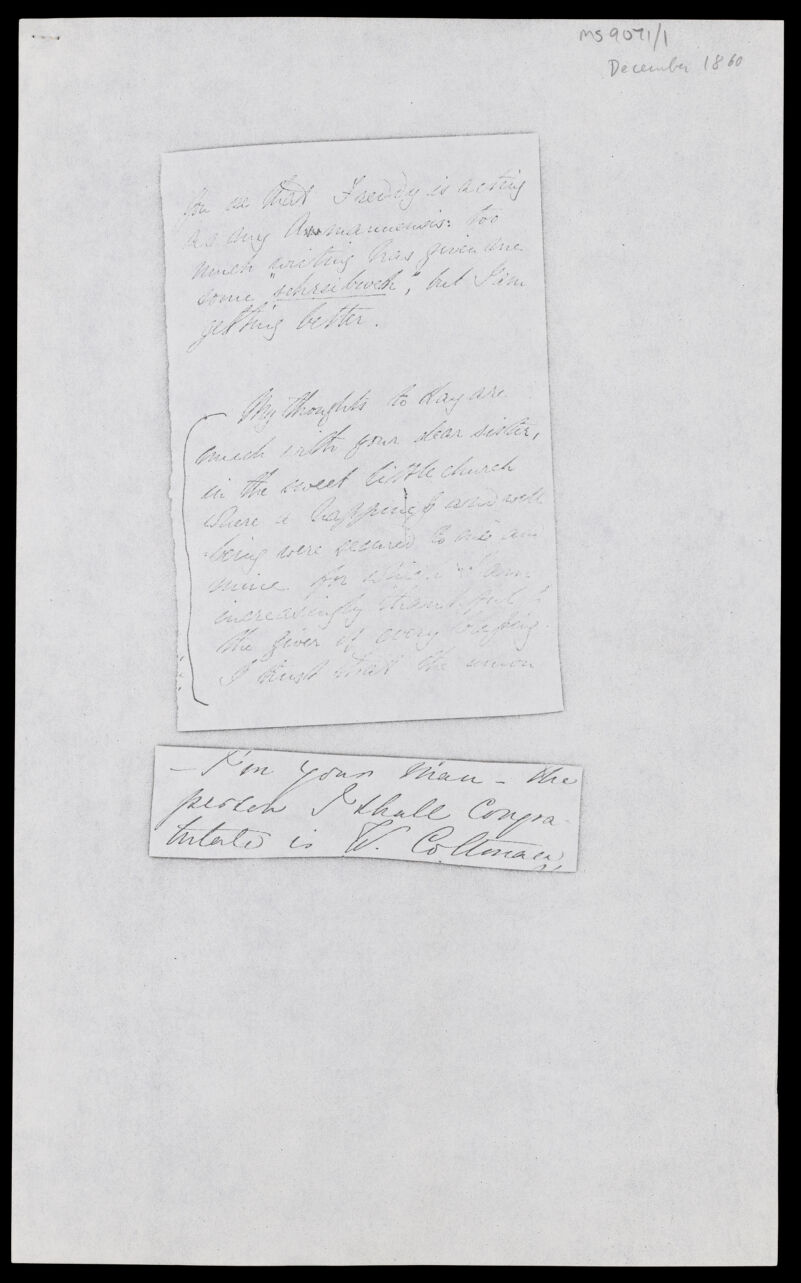 MS 9071/1
December 1860
you see that Freddy is acting
as my Amanuensis: too
much writing has given me
some "schreibweh", but I am
getting better.
My thoughts to day are
much with your dear sister,
in the sweet little church
where a happiness and well
being were secured to me and
mine for which I am
increasingly thankful to
the giver of every blessing.
I trust that the union
– I'm your man – the
person I shall congra-
tulate is W. Coltman,